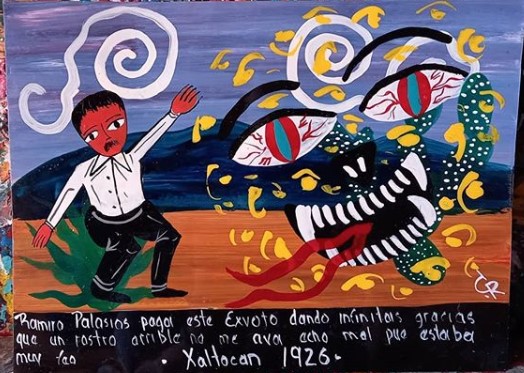 CR
Ramiro Palasios paga este Exvoto dando infinitas gracias
que un rostro orrible no me aya echo mal pue estaba
muy feo • Xaltocan 1926.